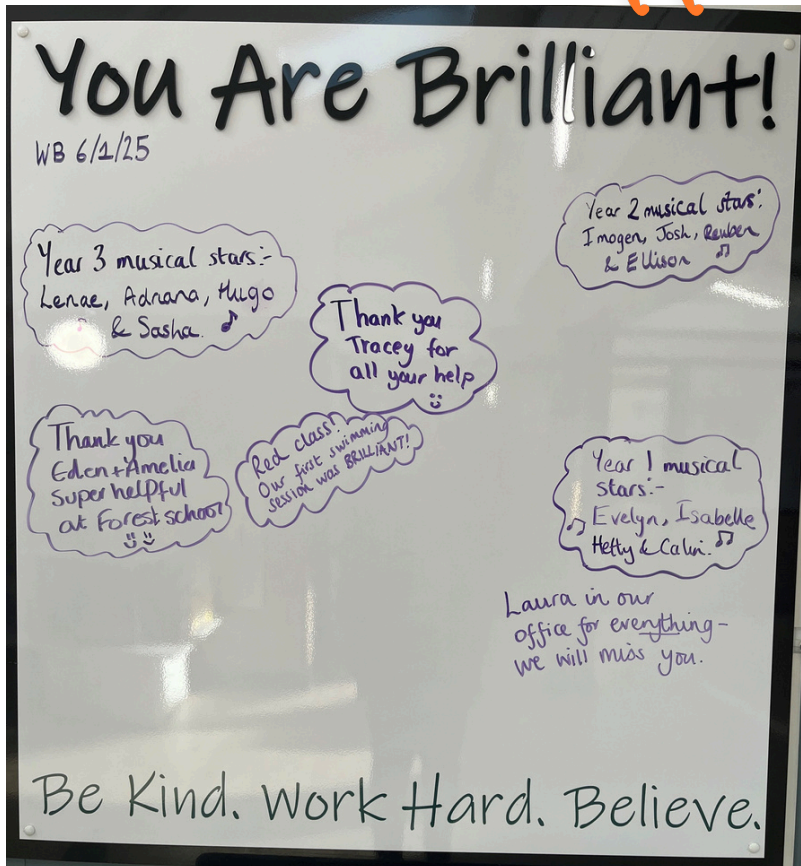 You Are Brilliant!
WB 6/1/25
Year 3 musical stars:-
Lenae, Adriana, Hugo
& Sasha.
Year 2 musical stars:
Imogen, Josh, Reuben
& Ellison
Thank you
Tracey for
all your help
Thank you
Eden + Amelia
super helpful
at Forest school
Red class!
Our first swimming
session was BRILLIANT!
Year 1 musical
stars:-
Evelyn, Isabelle
Hetty & Calvi.
Laura in our
office for everything-
we will miss you.
Be Kind. Work Hard. Believe.